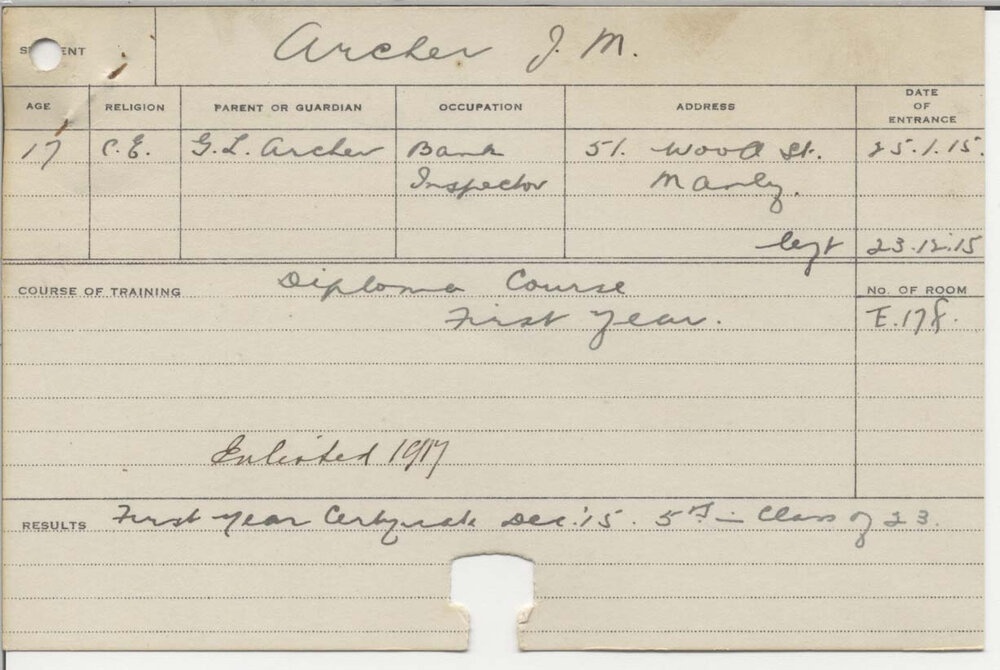 Archer J. M.
AGE RELIGION PARENT OR GUARDIAN OCCUPATION ADDRESS DATE OF ENTRANCE
17 C.E. G. L. Archer Bank 51. Wood St. 25.1.15.
Inspector Manly.
left 23.12.15
COURSE OF TRAINING Diploma Course NO. OF ROOM
First Year. E.178.
Enlisted 1917
RESULTS First Year Certificate Dec. '15. 5th in Class of 23.